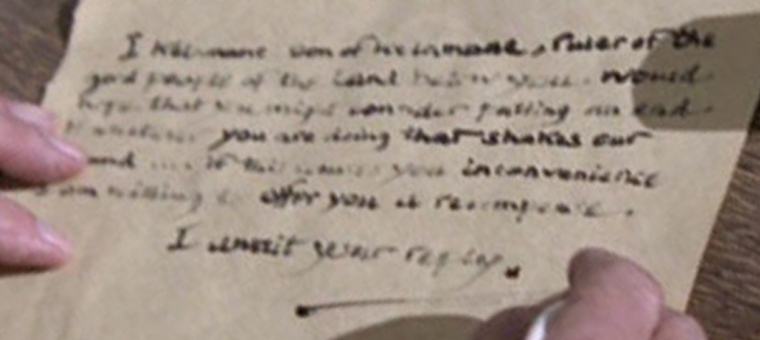 I son of , ruler of the
good people of the Land below you. Would
hope that you might consider putting an end
you are doing that shakes our
and if this causes you inconvenience
I am willing to offer you a recompense.
I await your reply.